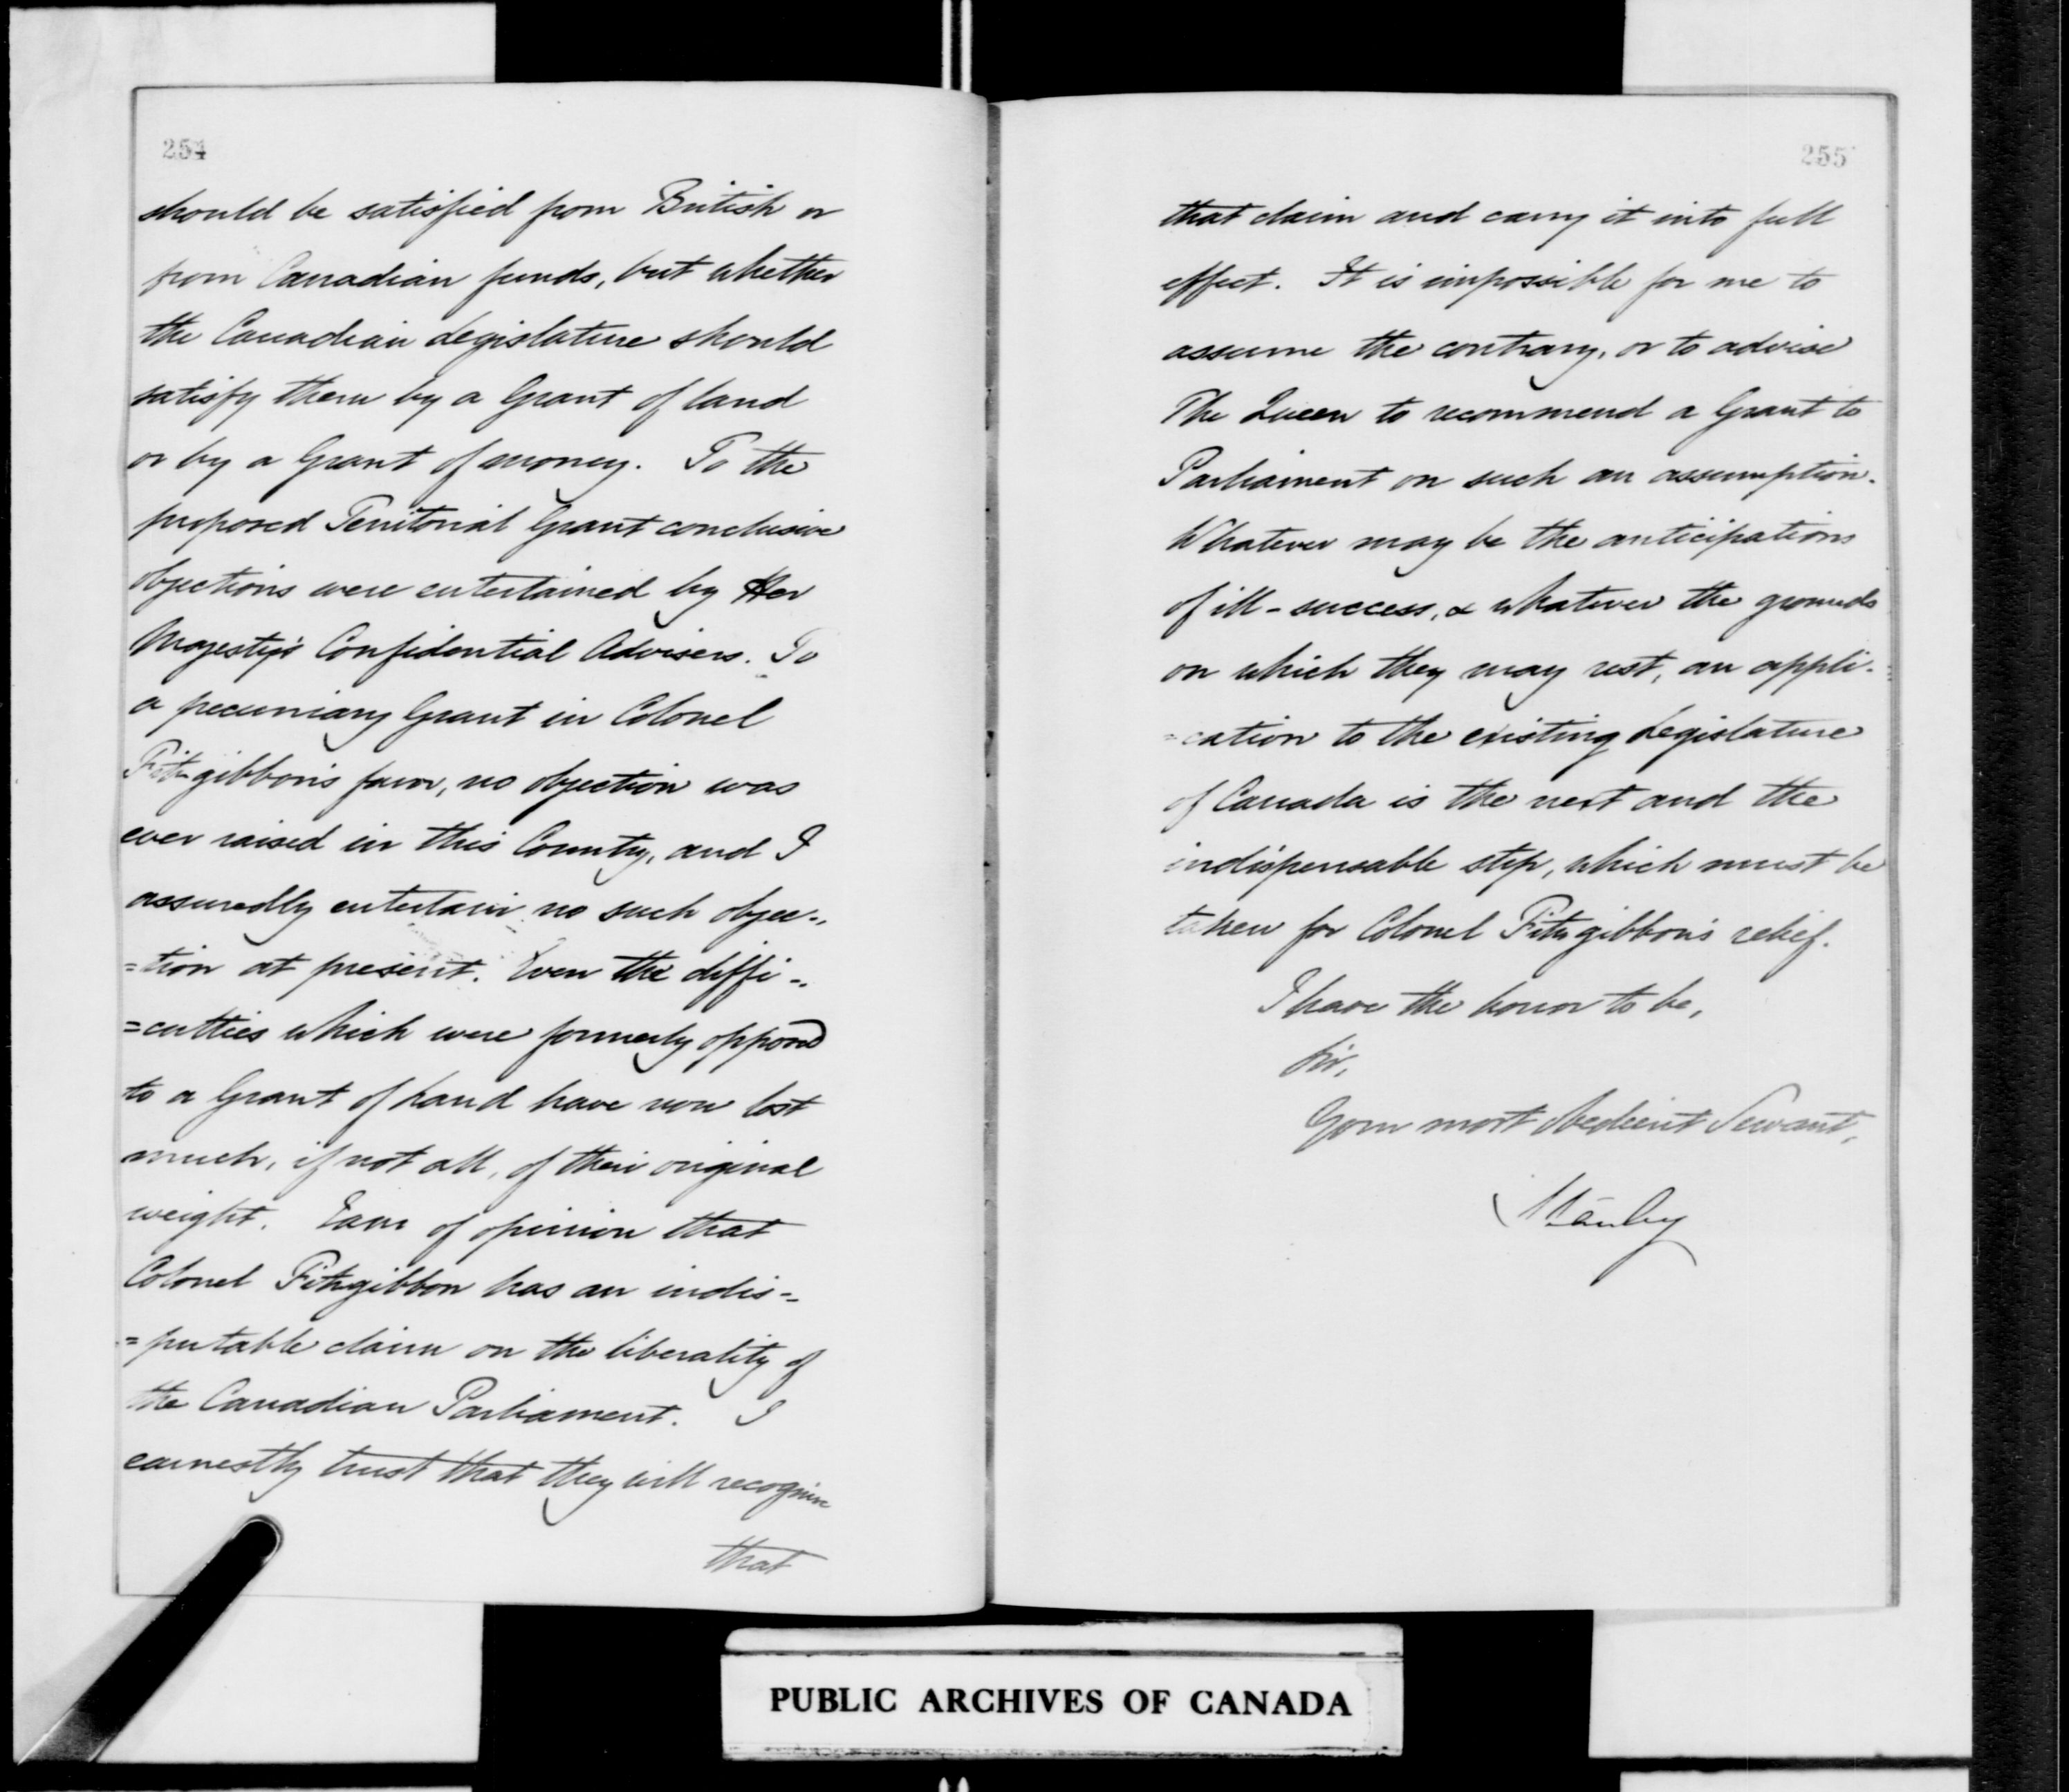 254
should be satisfied from British or
from Canadian funds, but whether
the Canadian Legislature should
satisfy them by a Grant of land
or by a Grant of money. To the
proposed Territorial Grant conclusive
objections were entertained by Her
Majesty's Confidential Advisers. To
a pecuniary Grant in Colonel
Fitzgibbon's favor, no objection was
ever raised in this Country, and I
assuredly entertain no such objec-
=tion at present. Even the diffi-
=culties which were formerly opposed
to a Grant of Land have now lost
much, if not all, of their original
weight. I am of opinion that
Colonel Fitzgibbon has an indis-
=putable claim on the liberality of
the Canadian Parliament. I
earnestly trust that they will recognize
that
255
that claim and carry it into full
effect. It is impossible for me to
assume the contrary, or to advise
The Queen to recommend a Grant to
Parliament on such an assumption.
Whatever may be the anticipations
of ill-success, & whatever the grounds
on which they may rest, an appli-
=cation to the existing Legislature
of Canada is the next and the
indispensable step, which must be
taken for Colonel Fitzgibbon's relief.
I have the honor to be,
Sir,
Your most obedient Servant,
Stanley
PUBLIC ARCHIVES OF CANADA